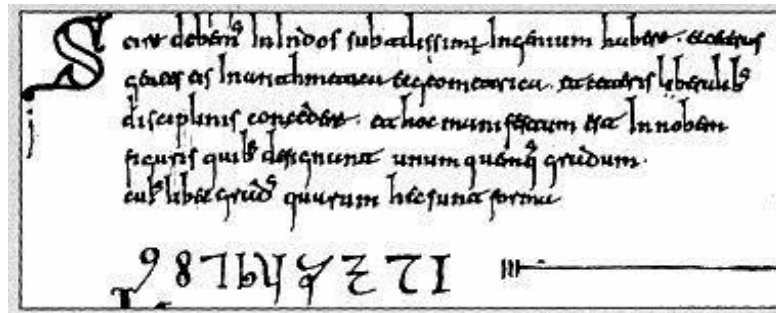 Scire debem⁹ In Indos subtilissimu Ingenium habere. et ceteras
gentes eis In arithmetica et geometrica. et ceteris liberalib⁹
disciplinis concedere. et hoc manifestum est In nobem
figuris quib⁹ designant unum quenq̄ gradum.
cui⁹libet grad⁹ quarum hec sunt forma
9 8 7 6 5 4 3 2 1